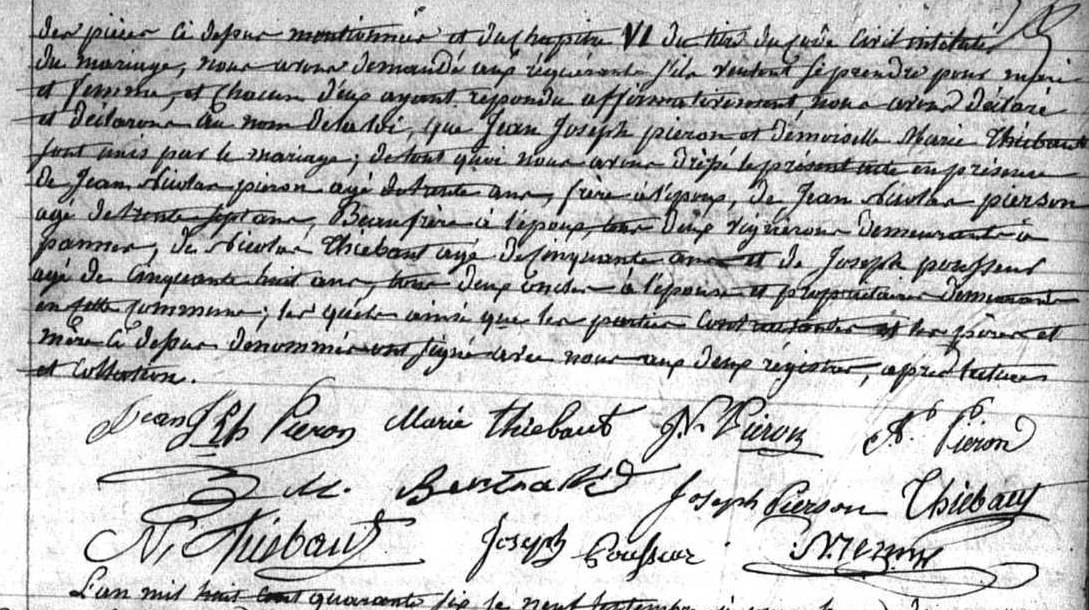 des pièces ci dessus mentionnées et du chapitre VI du titre du code civil intitulé
du mariage, nous avons demandé aux réquérants s'ils veulent se prendre pour mari
et femme, et chacun d'eux ayant répondu affirmativement nous avons déclaré
et déclarons au nom de la loi, que Jean Joseph pieron et démoiselle Marie Thiébaut
sont unis par le mariage; de tout quoi nous avons dréssé le présent acte en présence
de Jean Nicolas pieron agé de trente ans, frère à l'époux, de Jean Nicolas pierson
agé de trente sept ans, Beau frère à l'époux, tous deux vignerons demeurants à
pannes, de Nicolas Thiebaut agé de Cinquante ans et de Joseph pousseur
agé de Cinquante huit ans, tous deux oncles à l'épouse et propriétaires demeurants
en cette commune; les quels ainsi que les parties Contractantes et les pères et
mère ci dessus dénommés ont signé avec nous aux deux régistres, après lecture
et Collation.
Jean Jph Pieron Marie Thiebaut N. Pieron N. Pieron
M. Bertrand Joseph Pierson Thiebaut
N. Thiebaut Joseph Pousseur
L'an mil huit cent quarante six le neuf septembre